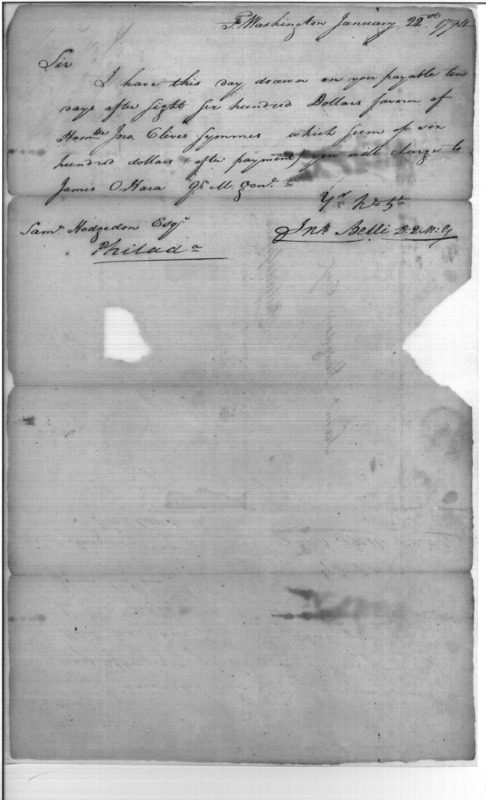 Ft. Washington January 22nd. 1794
Sir
I have this day drawn on you payable ten
days after sight six hundred Dollars favour of
Honble Jno. Cleves Symmes which sum of six
hundred dollars (after payment) you will charge to
James O Hara Qr. M. Genl.
Yr. H. St
Jno. Belli D.Q.M.G
Saml. Hodgdon Esqr.
Philada